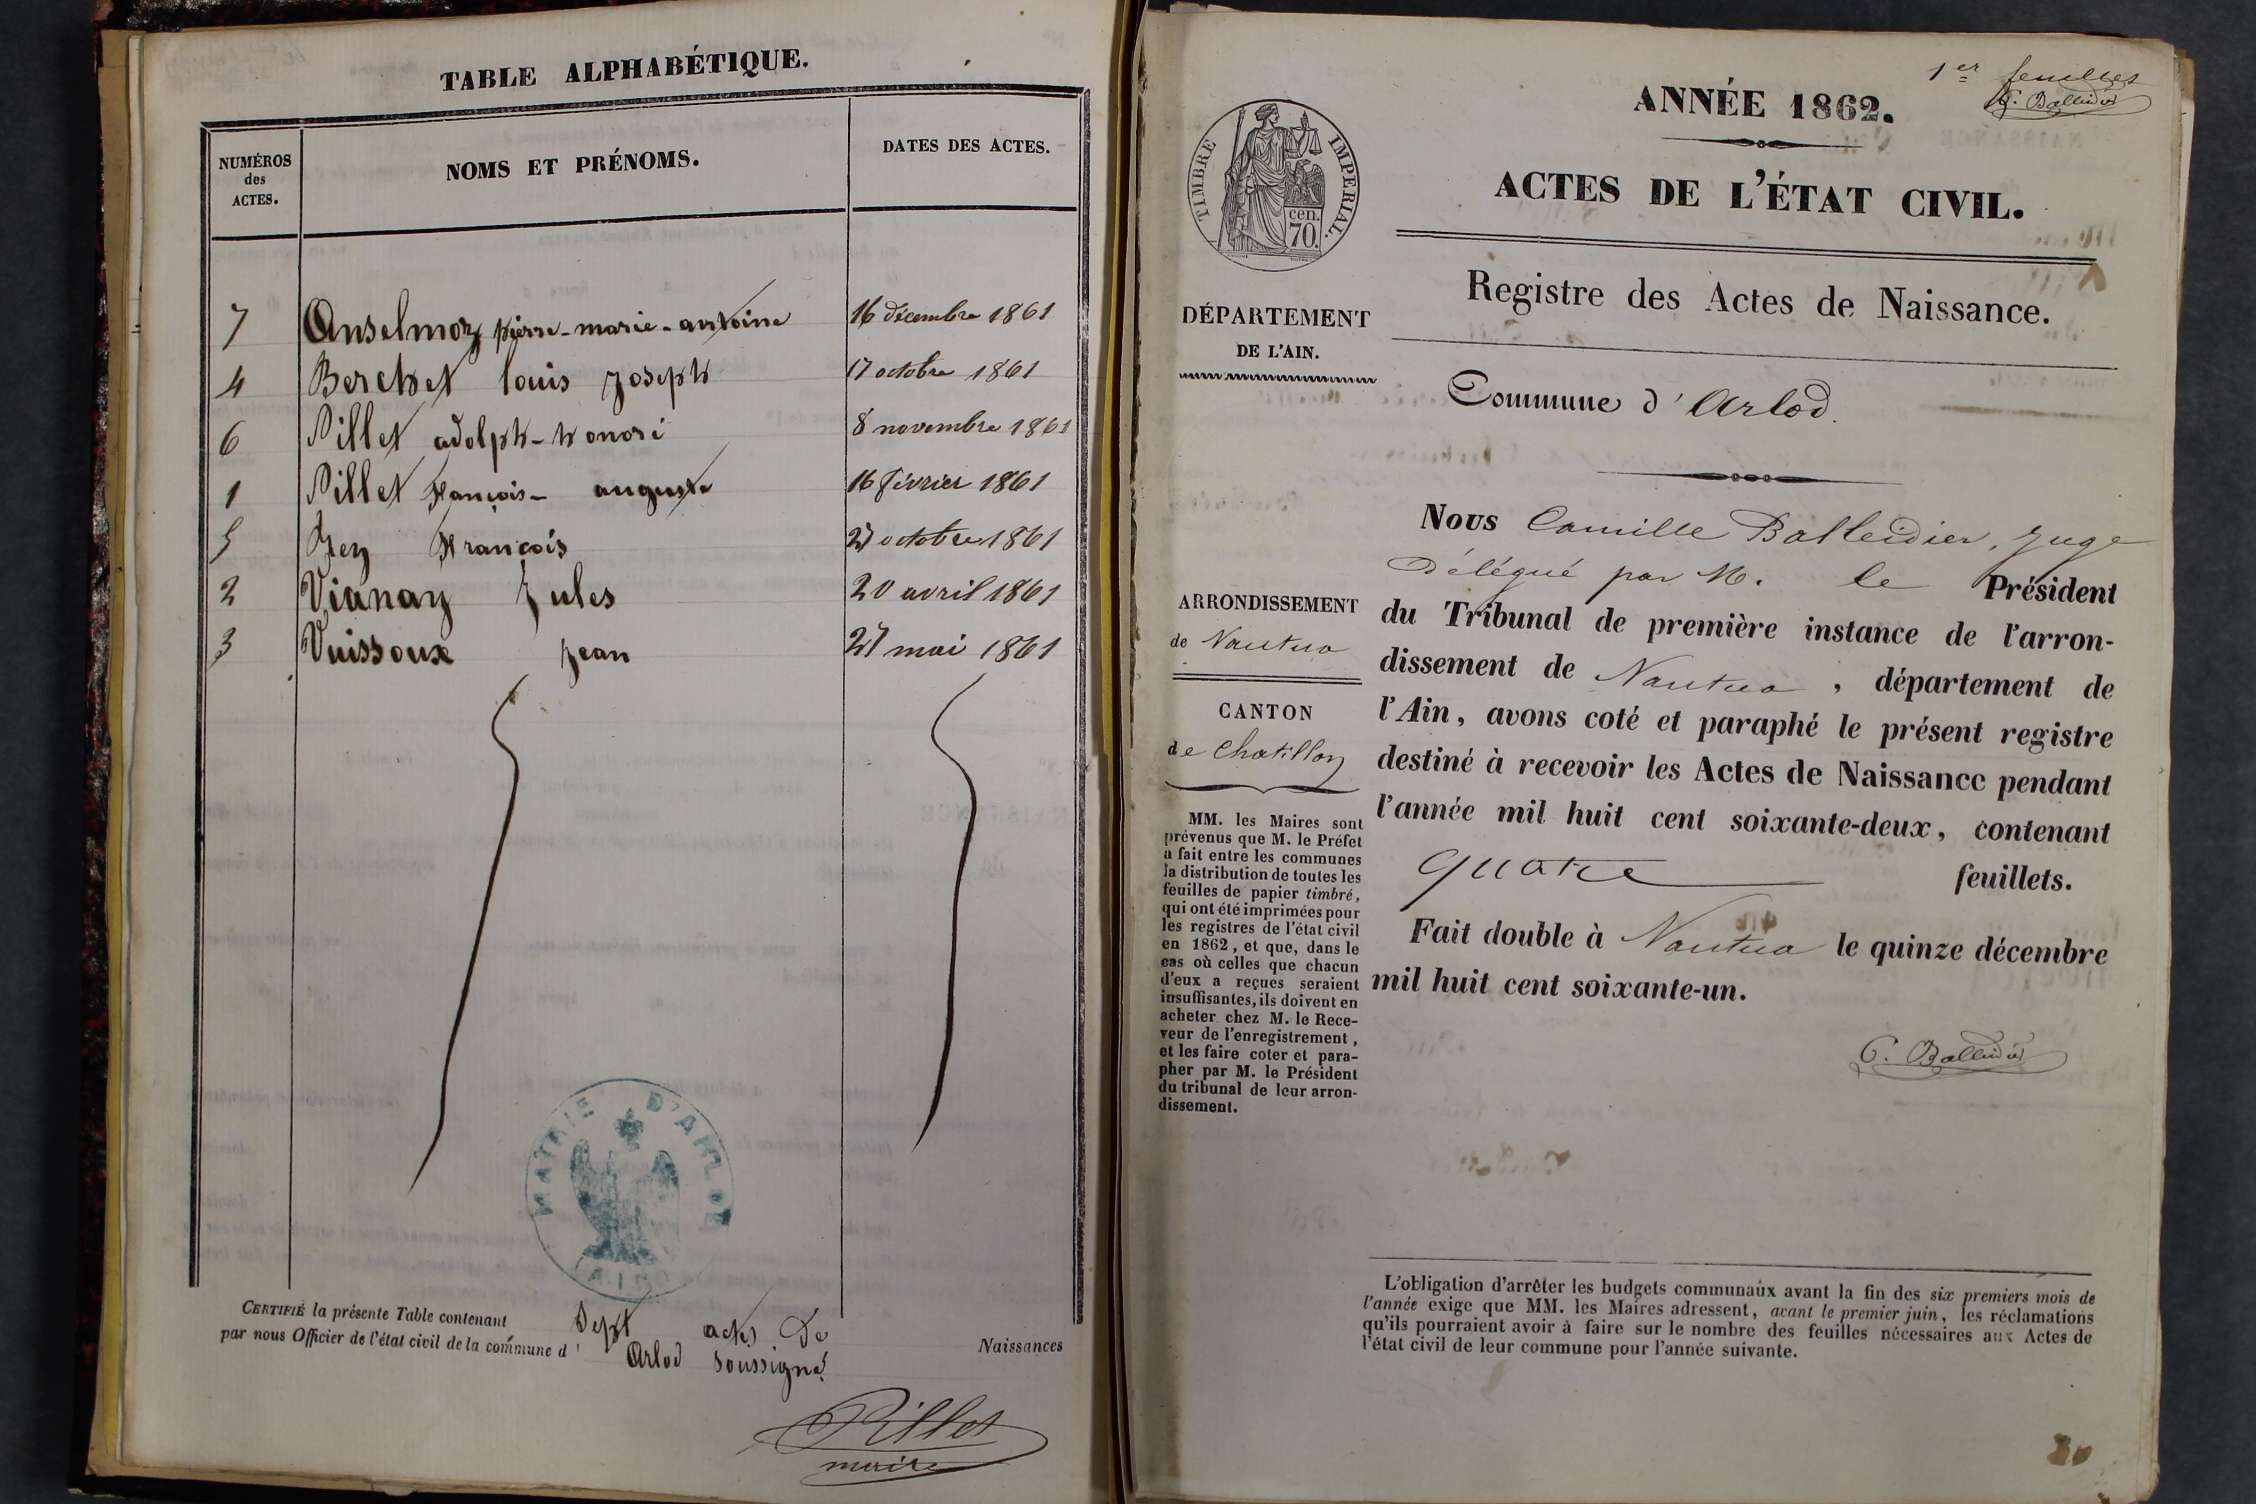 TABLE ALPHABÉTIQUE.
NUMÉROS
des
ACTES.
NOMS ET PRÉNOMS.
DATES DES ACTES.
7 Anselmoz pierre-marie-antoine 16 décembre 1861
4 Berchet louis joseph 17 octobre 1861
6 Pillet adolph-honoré 8 novembre 1861
1 Pillet François-auguste 16 février 1861
5 François 27 octobre 1861
2 Vianay Jules 20 avril 1861
3 Vuissoux jean 27 mai 1861
MAIRIE D'ARLOD
(AIN)
CERTIFIÉ la présente Table contenant Sept actes de Naissances
par nous Officier de l'état civil de la commune d' Arlod soussigné
Pillet
maire
1er feuillet
C. Balleidier
ANNÉE 1862.
ACTES DE L'ÉTAT CIVIL.
TIMBRE IMPERIAL.
cen.
70.
Registre des Actes de Naissance.
DÉPARTEMENT
DE L'AIN.
Commune d'Arlod.
ARRONDISSEMENT
de Nantua
CANTON
de Chatillon
MM. les Maires sont
prévenus que M. le Préfet
a fait entre les communes
la distribution de toutes les
feuilles de papier timbré,
qui ont été imprimées pour
les registres de l'état civil
en 1862, et que, dans le
cas où celles que chacun
d'eux a reçues seraient
insuffisantes, ils doivent en
acheter chez M. le Rece-
veur de l'enregistrement,
et les faire coter et para-
pher par M. le Président
du tribunal de leur arron-
dissement.
Nous Camille Balleidier, juge
Délégué par M. le Président
du Tribunal de première instance de l'arron-
dissement de Nantua, département de
l'Ain, avons coté et paraphé le présent registre
destiné à recevoir les Actes de Naissance pendant
l'année mil huit cent soixante-deux, contenant
quatre feuillets.
Fait double à Nantua le quinze décembre
mil huit cent soixante-un.
C. Balleidier
L'obligation d'arrêter les budgets communaux avant la fin des six premiers mois de
l'année exige que MM. les Maires adressent, avant le premier juin, les réclamations
qu'ils pourraient avoir à faire sur le nombre des feuilles nécessaires aux Actes de
l'état civil de leur commune pour l'année suivante.